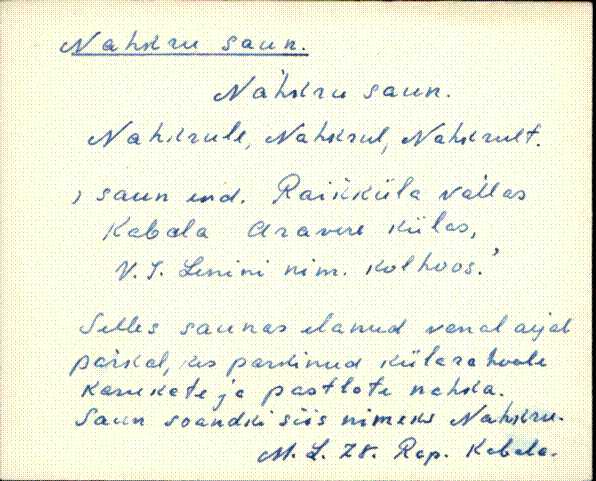 Nahkru saun.
Nahkru saun.
Nahkrule, Nahkrul, Nahkrult.
, saun end. Raikküla vallas
Kabala Aravere külas,
V. I. Lenini nim. kolhoos.'
Selles saunas elanud vanal ajal
parkal, kes parkinud külarahvale
kasukate ja pastlate nahka.
Saun saandki siis nimeks Nahkru.
M. L. 78. Rap. Kabala.